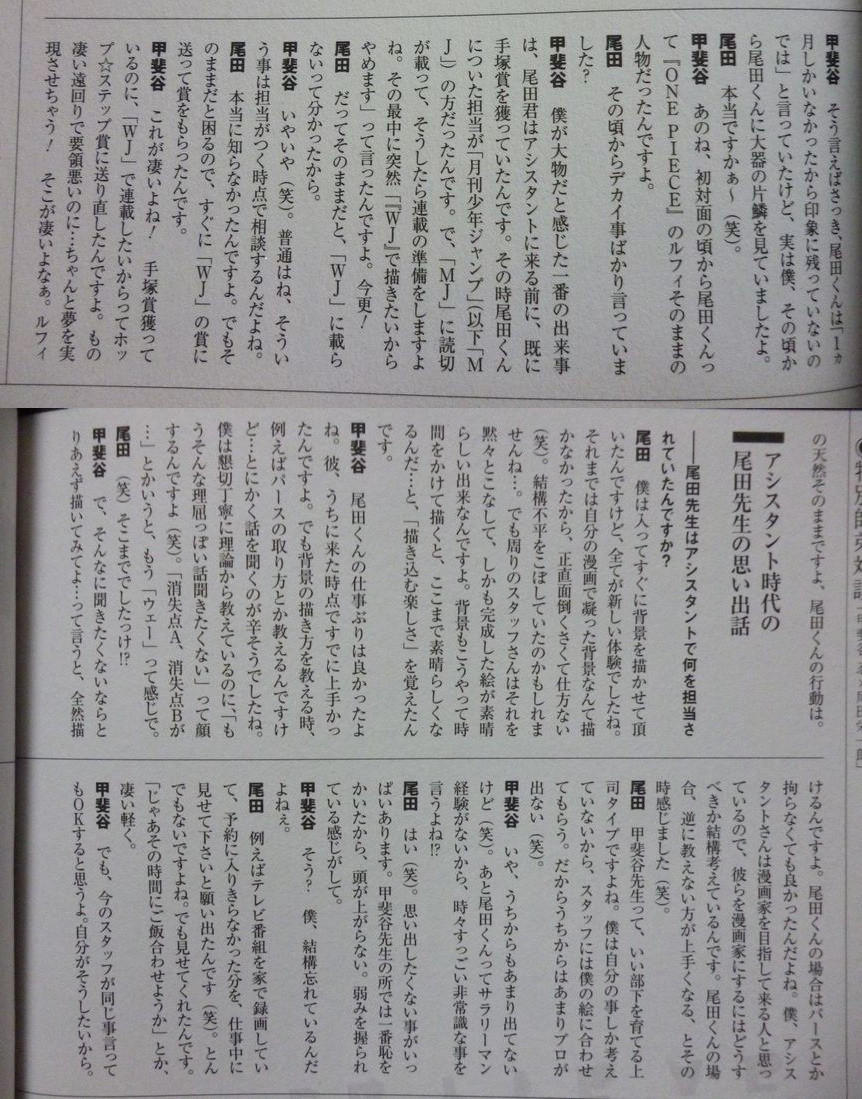 甲斐谷　そう言えばさっき、尾田くんは「1ヵ
月しかいなかったから印象に残っていないの
では」と言っていたけど、実は僕、その頃か
ら尾田くんに大器の片鱗を見ていましたよ。
尾田　本当ですかぁ～（笑）。
甲斐谷　あのね、初対面の頃から尾田くんっ
て『ONE PIECE』のルフィそのままの
人物だったんですよ。
尾田　その頃からデカイ事ばかり言っていま
した？
甲斐谷　僕が大物だと感じた一番の出来事
は、尾田君はアシスタントに来る前に、既に
手塚賞を獲っていたんです。その時尾田くん
についた担当が「月刊少年ジャンプ」（以下「M
J」）の方だったんです。で、「MJ」に読切
が載って、そうしたら連載の準備をしますよ
ね。その最中に突然「『WJ』で描きたいから
やめます」って言ったんですよ。今更！
尾田　だってそのままだと、「WJ」に載ら
ないって分かったから。
甲斐谷　いやいや（笑）。普通はね、そうい
う事は担当がつく時点で相談するんだよね。
尾田　本当に知らなかったんですよ。でもそ
のままだと困るので、すぐに「WJ」の賞に
送って賞をもらったんです。
甲斐谷　これが凄いよね！　手塚賞獲って
いるのに、「WJ」で連載したいからってホッ
プ☆ステップ賞に送り直したんですよ。もの
凄い遠回りで要領悪いのに…ちゃんと夢を実
現させちゃう！　そこが凄いよなぁ。ルフィ
の天然そのままですよ、尾田くんの行動は。
アシスタント時代の
尾田先生の思い出話
――尾田先生はアシスタントで何を担当さ
れていたんですか？
尾田　僕は入ってすぐに背景を描かせて頂
いたんですけど、全てが新しい体験でしたね。
それまでは自分の漫画で凝った背景なんて描
かなかったから、正直面倒くさくて仕方ない
（笑）。結構不平をこぼしていたのかもしれま
せんね…。でも周りのスタッフさんはそれを
黙々とこなして、しかも完成した絵が素晴
らしい出来なんですよ。背景もこうやって時
間をかけて描くと、ここまで素晴らしくな
るんだ…と、「描き込む楽しさ」を覚えたん
です。
甲斐谷　尾田くんの仕事ぶりは良かったよ
ね。彼、うちに来た時点ですでに上手かっ
たんですよ。でも背景の描き方を教える時、
例えばパースの取り方とか教えるんですけ
ど…とにかく話を聞くのが辛そうでしたね。
僕は懇切丁寧に理論から教えているのに、「も
うそんな理屈っぽい話聞きたくない」って顔
するんですよ（笑）。「消失点A、消失点Bが
…」とかいうと、もう「ウェー」って感じで。
尾田　（笑）そこまででしたっけ!?
甲斐谷　で、そんなに聞きたくないならと
りあえず描いてみてよ…って言うと、全然描
けるんですよ。尾田くんの場合はパースとか
拘らなくても良かったんだよね。僕、アシス
タントさんは漫画家を目指して来る人と思っ
ているので、彼らを漫画家にするにはどうす
べきか結構考えているんです。尾田くんの場
合、逆に教えない方が上手くなる、とその
時感じました（笑）。
尾田　甲斐谷先生って、いい部下を育てる上
司タイプですよね。僕は自分の事しか考え
ていないから、スタッフには僕の絵に合わせ
てもらう。だからうちからはあまりプロが
出ない（笑）。
甲斐谷　いや、うちからもあまり出てない
けど（笑）。あと尾田くんってサラリーマン
経験がないから、時々すっごい非常識な事を
言うよね!?
尾田　はい（笑）。思い出したくない事がいっ
ぱいあります。甲斐谷先生の所では一番恥を
かいたから、頭が上がらない。弱みを握られ
ている感じがして。
甲斐谷　そう？　僕、結構忘れているんだ
よねぇ。
尾田　例えばテレビ番組を家で録画してい
て、予約に入りきらなかった分を、仕事中に
見せて下さいと願い出たんです（笑）。とん
でもないですよね。でも見せてくれたんです。
「じゃあその時間にご飯合わせようか」とか、
凄い軽く。
甲斐谷　でも、今のスタッフが同じ事言って
もOKすると思うよ。自分がそうしたいから。